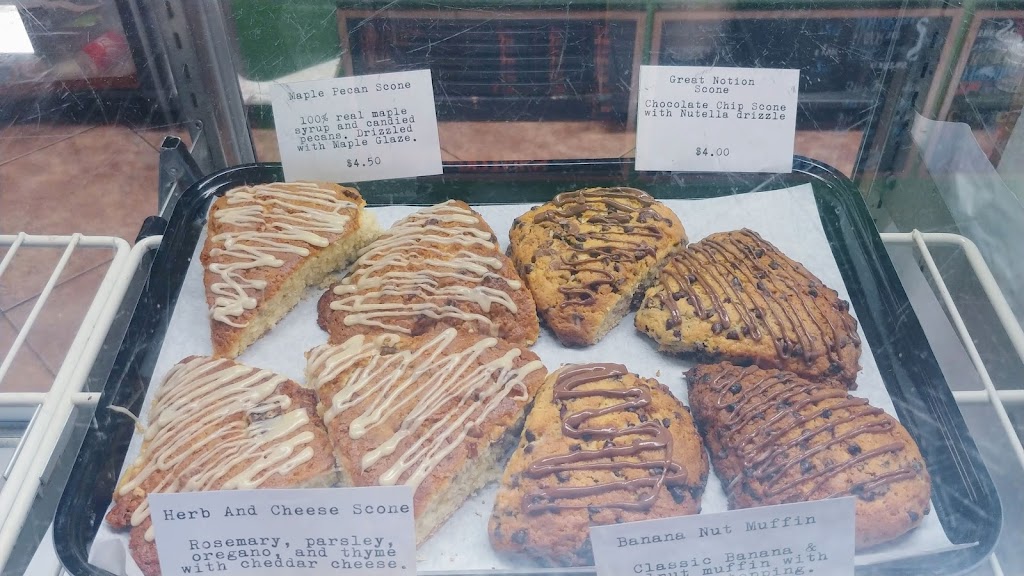 Maple Pecan Scone
100% real maple
syrup and candied
pecans. Drizzled
with Maple Glaze.
$4.50
Great Notion
Scone
Chocolate Chip Scone
with Nutella drizzle
$4.00
Herb And Cheese Scone
Rosemary, parsley,
oregano, and thyme
with cheddar cheese.
Banana Nut Muffin
Classic Banana &
muffin with